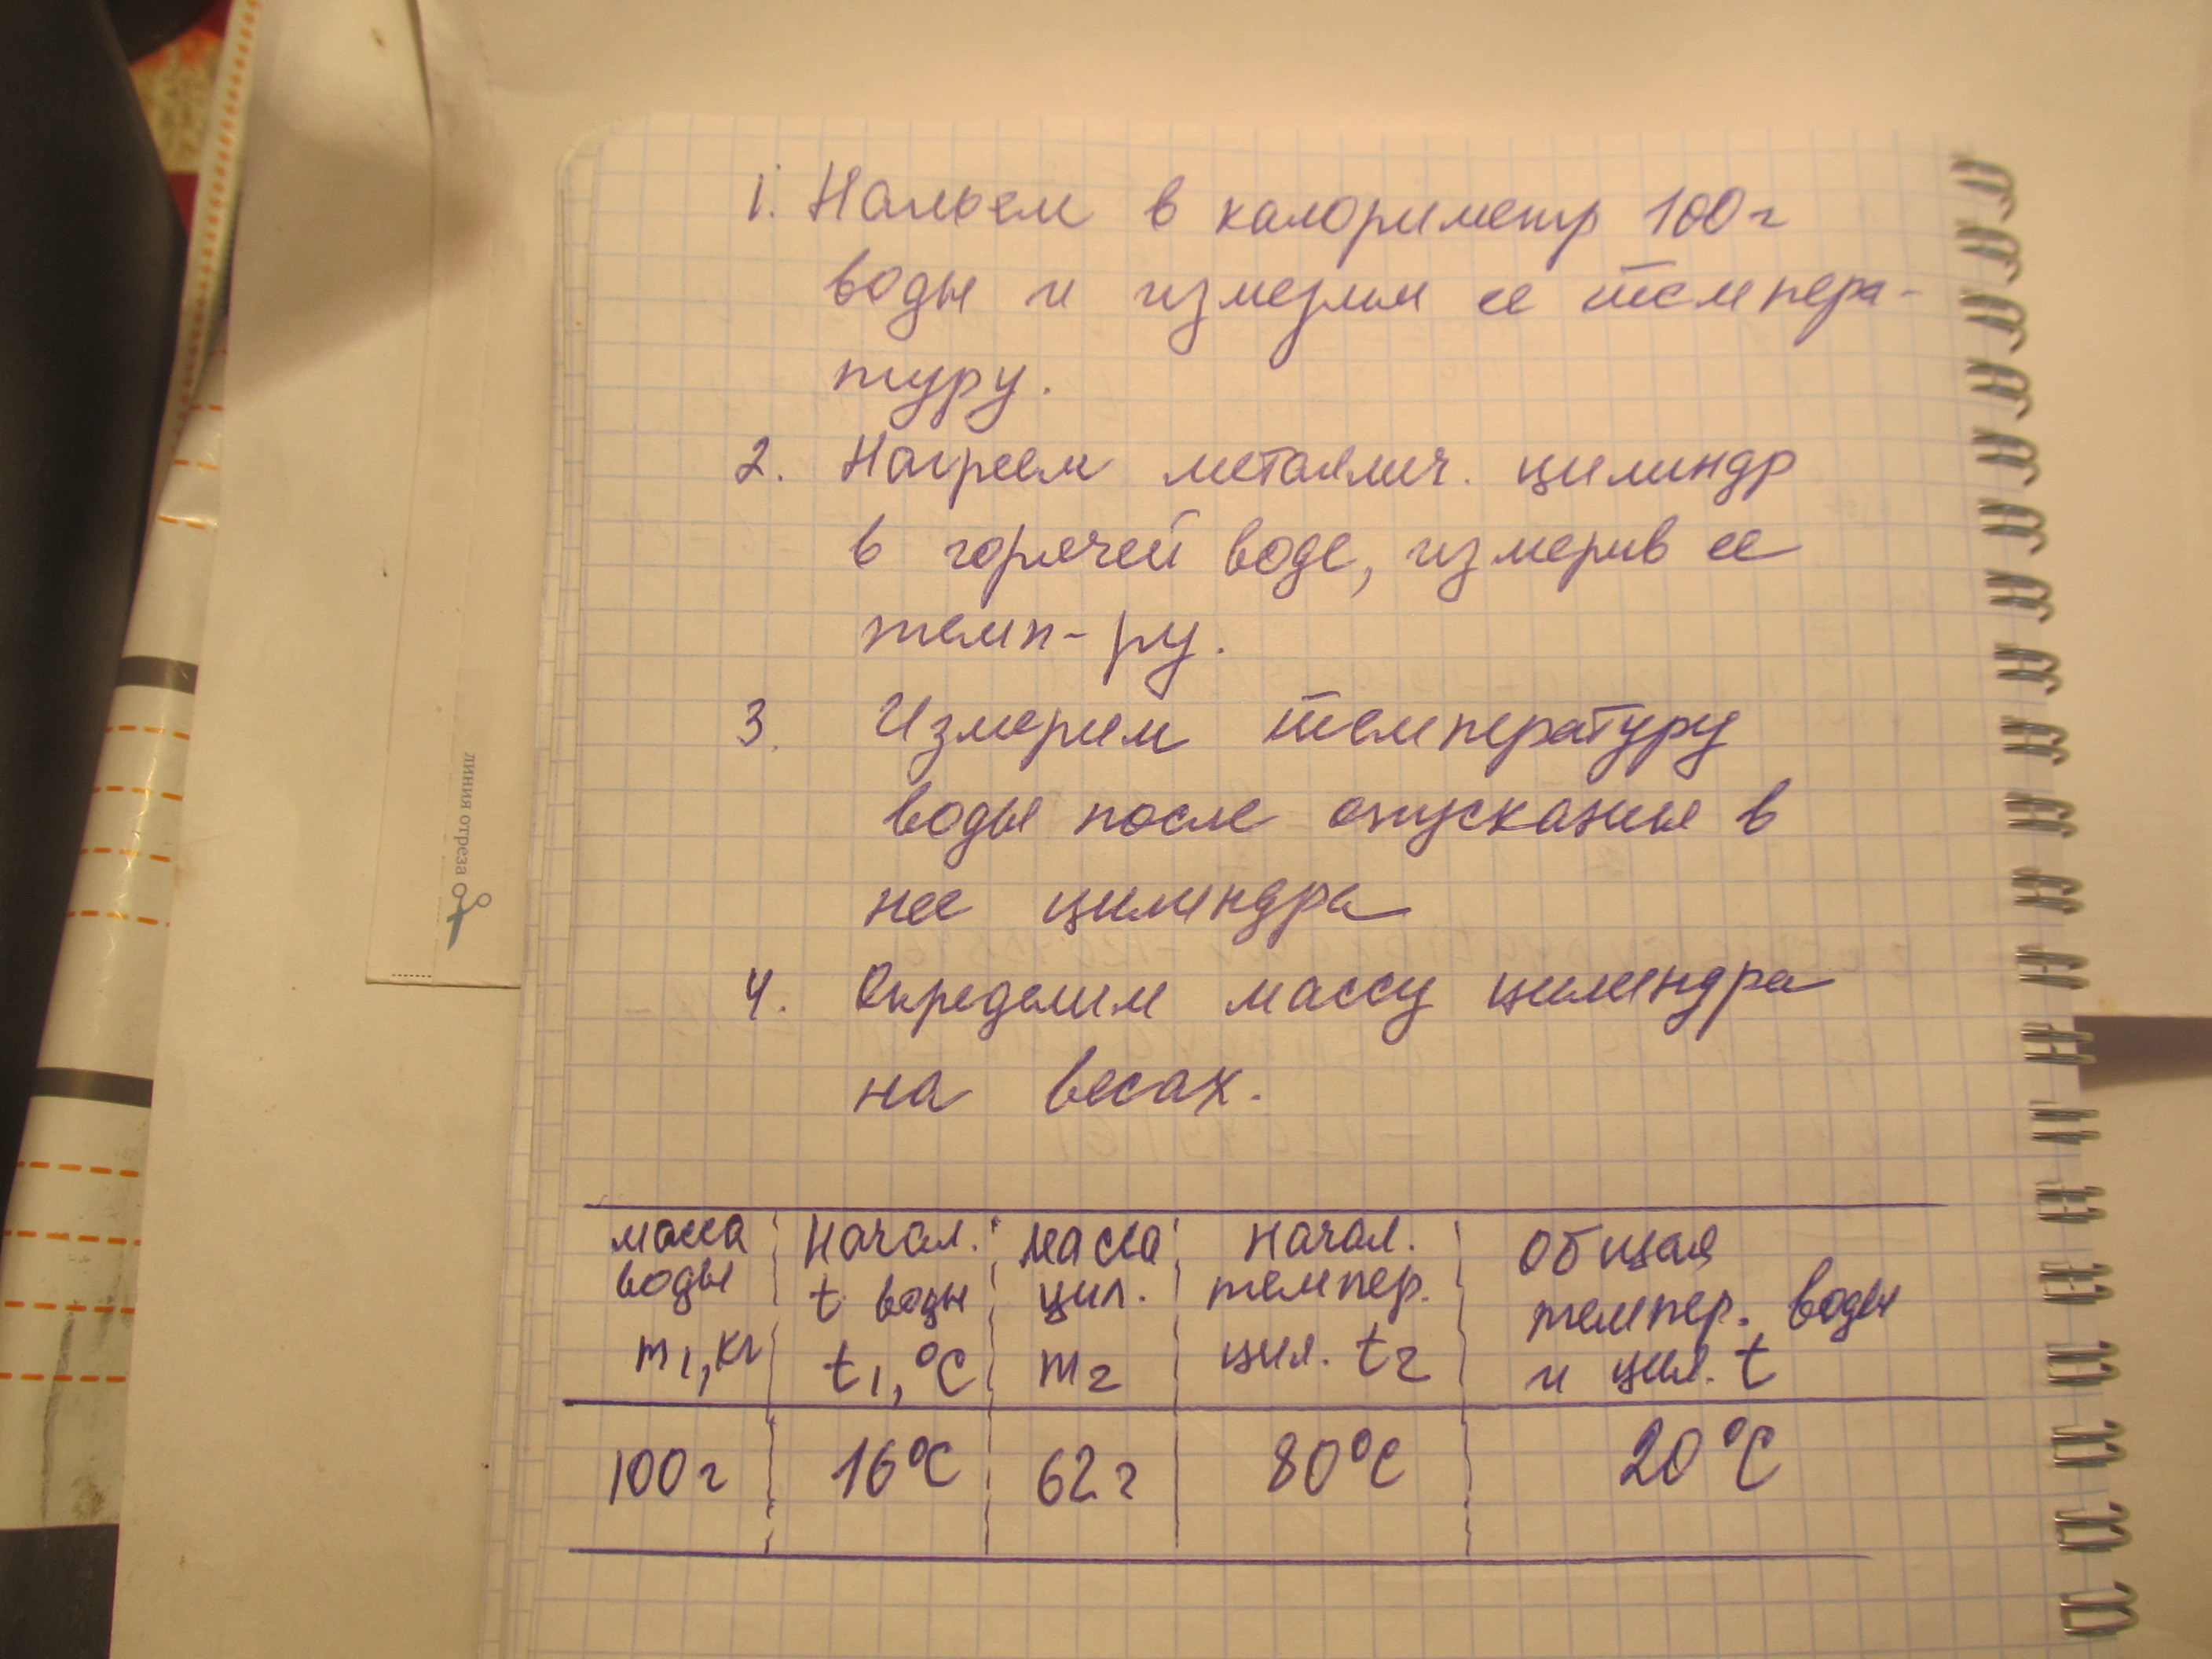 1. Нальем в калориметр 100 г
воды и измерим ее темпера-
туру.
2. Нагреем металлич. цилиндр
в горячей воде, измерив ее
темп-ру.
3. Измерим температуру
воды после опускания в
нее цилиндра
4. Определим массу цилиндра
на весах.
масса воды m1, кг | Начал. t воды t1, °C | Масса цил. m2 | Начал. темпер. цил. t2 | Общая темпер. воды и цил. t
100 г | 16 °C | 62 г | 80 °C | 20 °C
линия отреза